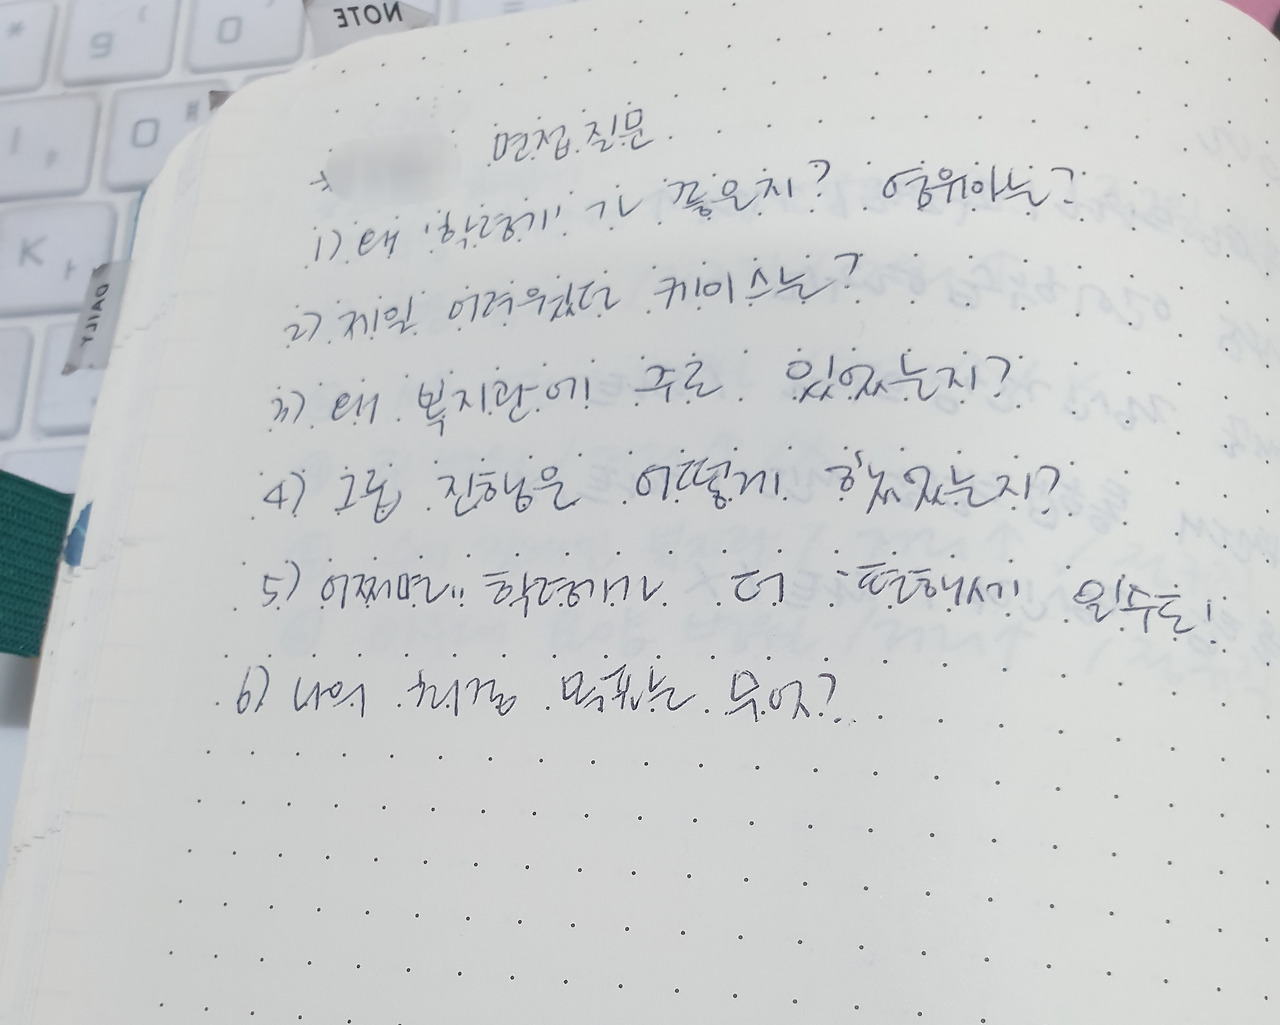 NOTE
DAILY
면접 질문
1) 왜 '학령기'가 좋은지? 영유아는?
2) 제일 어려웠던 케이스는?
3) 왜 복지관에 주로 있었는지?
4) 그룹 진행은 어떻게 했었는지?
5) 어쩌면.. 학령기가 더 일수도!
6) 나의 목표는 무엇?